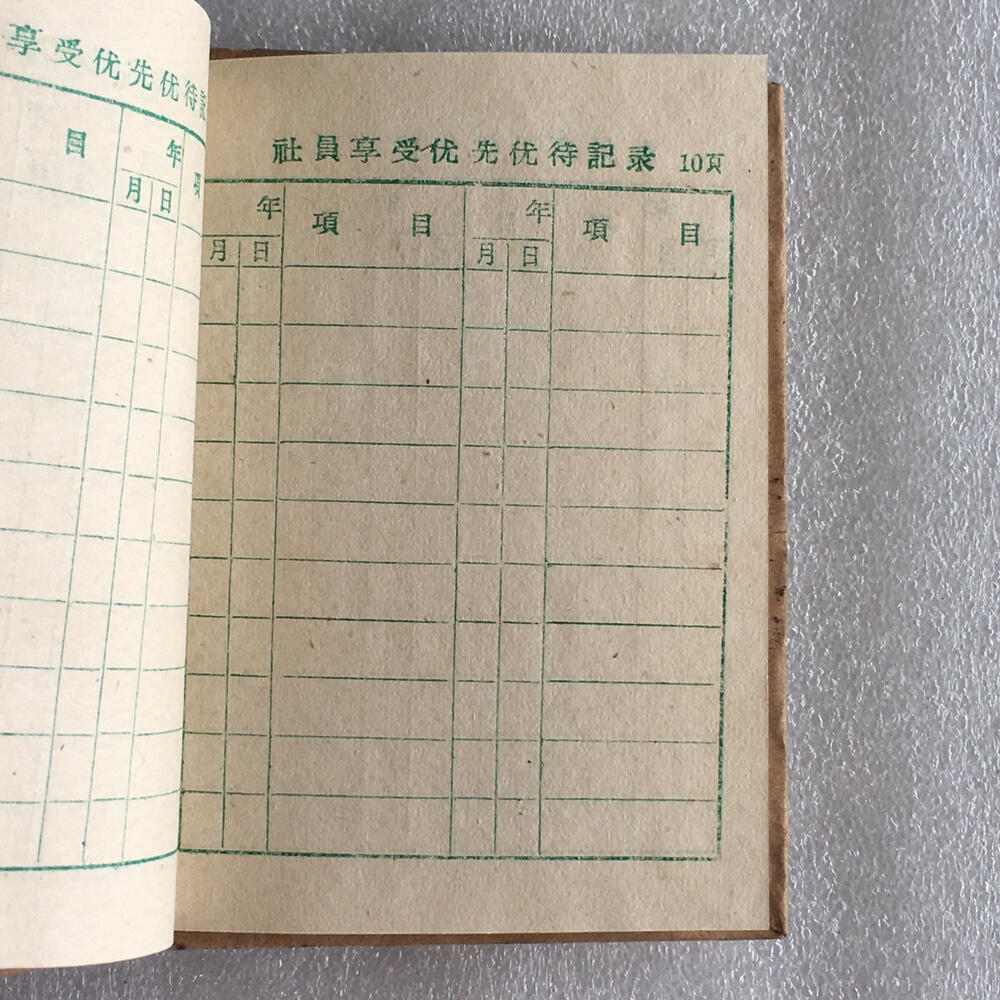 享受优先优待記
目 年 項
月 日
社員享受优先优待記录 10頁
年 項 目 年 項 目
月 日 月 日